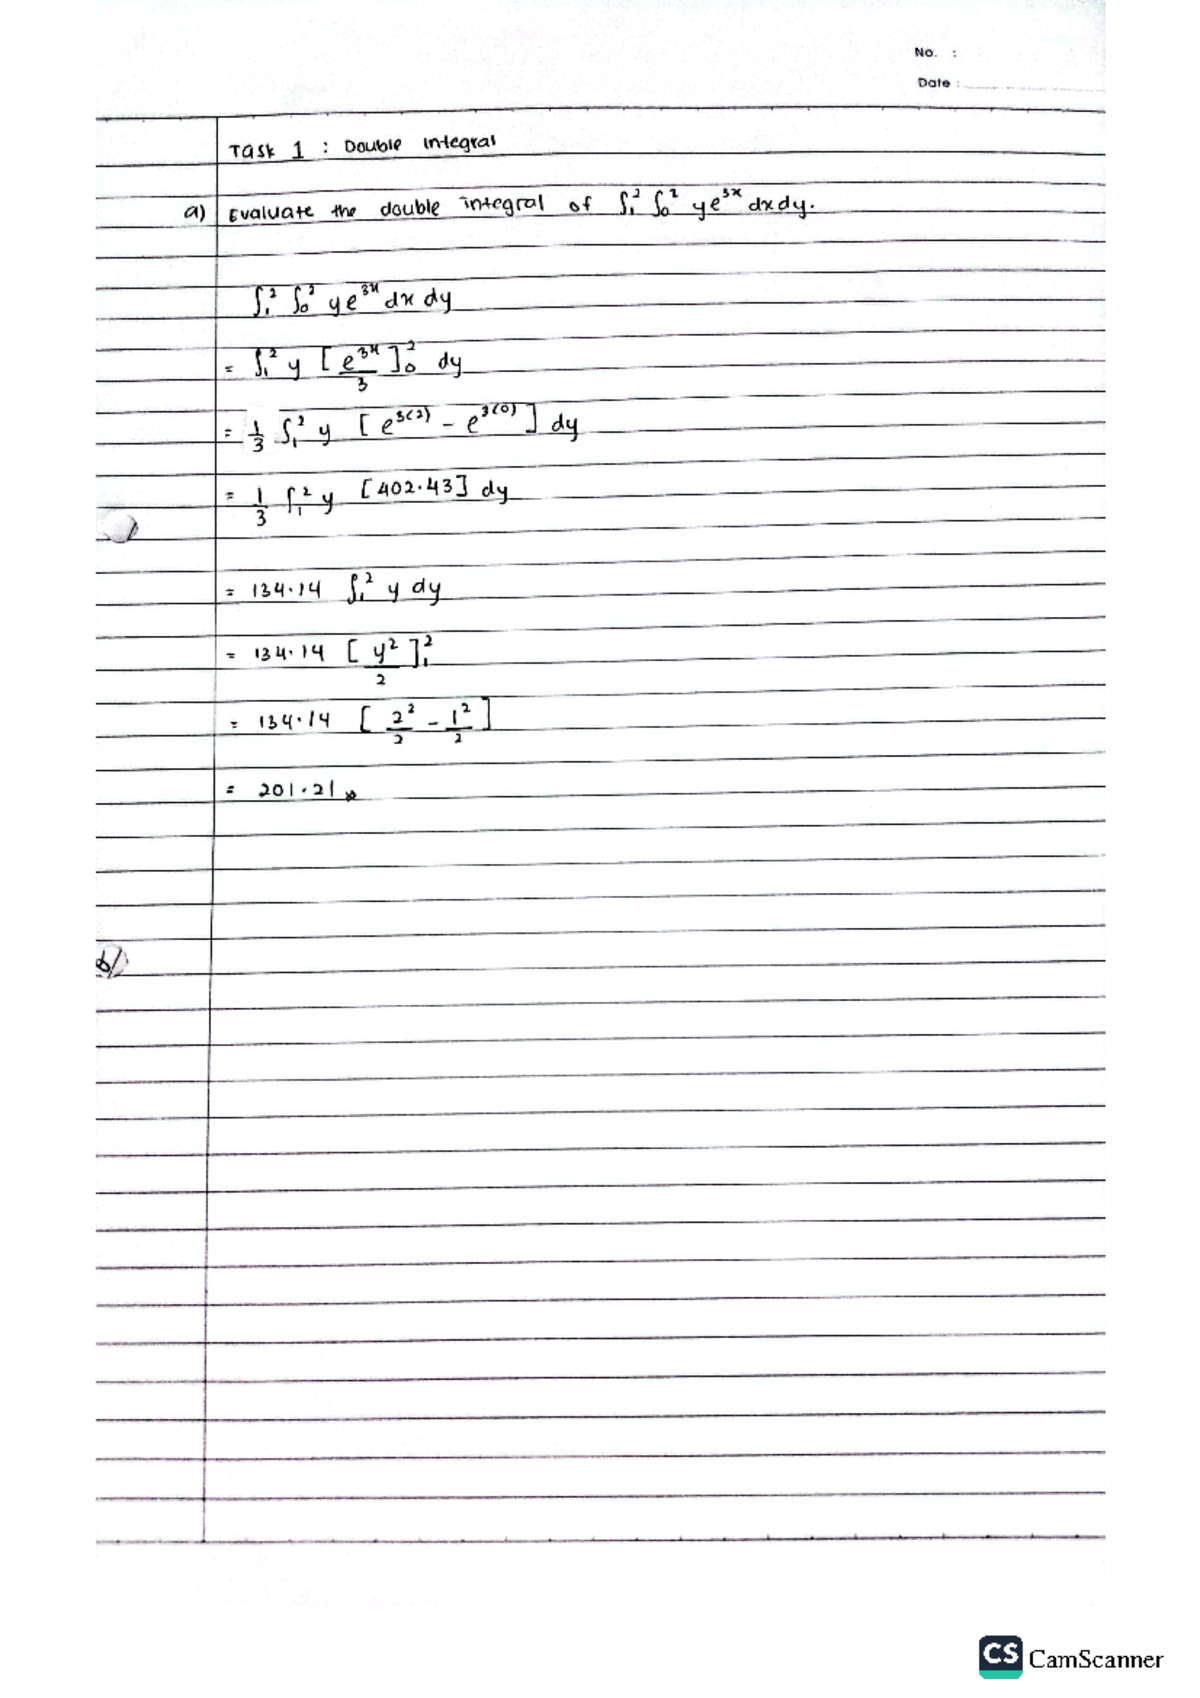 No. :
Date :
Task 1 : Double integral
a) Evaluate the double integral of ∫₁² ∫₀² ye³ˣ dx dy.
∫₁² ∫₀² ye³ˣ dx dy
= ∫₁² y [e³ˣ/3]₀² dy
= 1/3 ∫₁² y [e³⁽²⁾ - e³⁽⁰⁾] dy
= 1/3 ∫₁² y [402.43] dy
= 134.14 ∫₁² y dy
= 134.14 [y²/2]₁²
= 134.14 [2²/2 - 1²/2]
= 201.21
b)
CS CamScanner